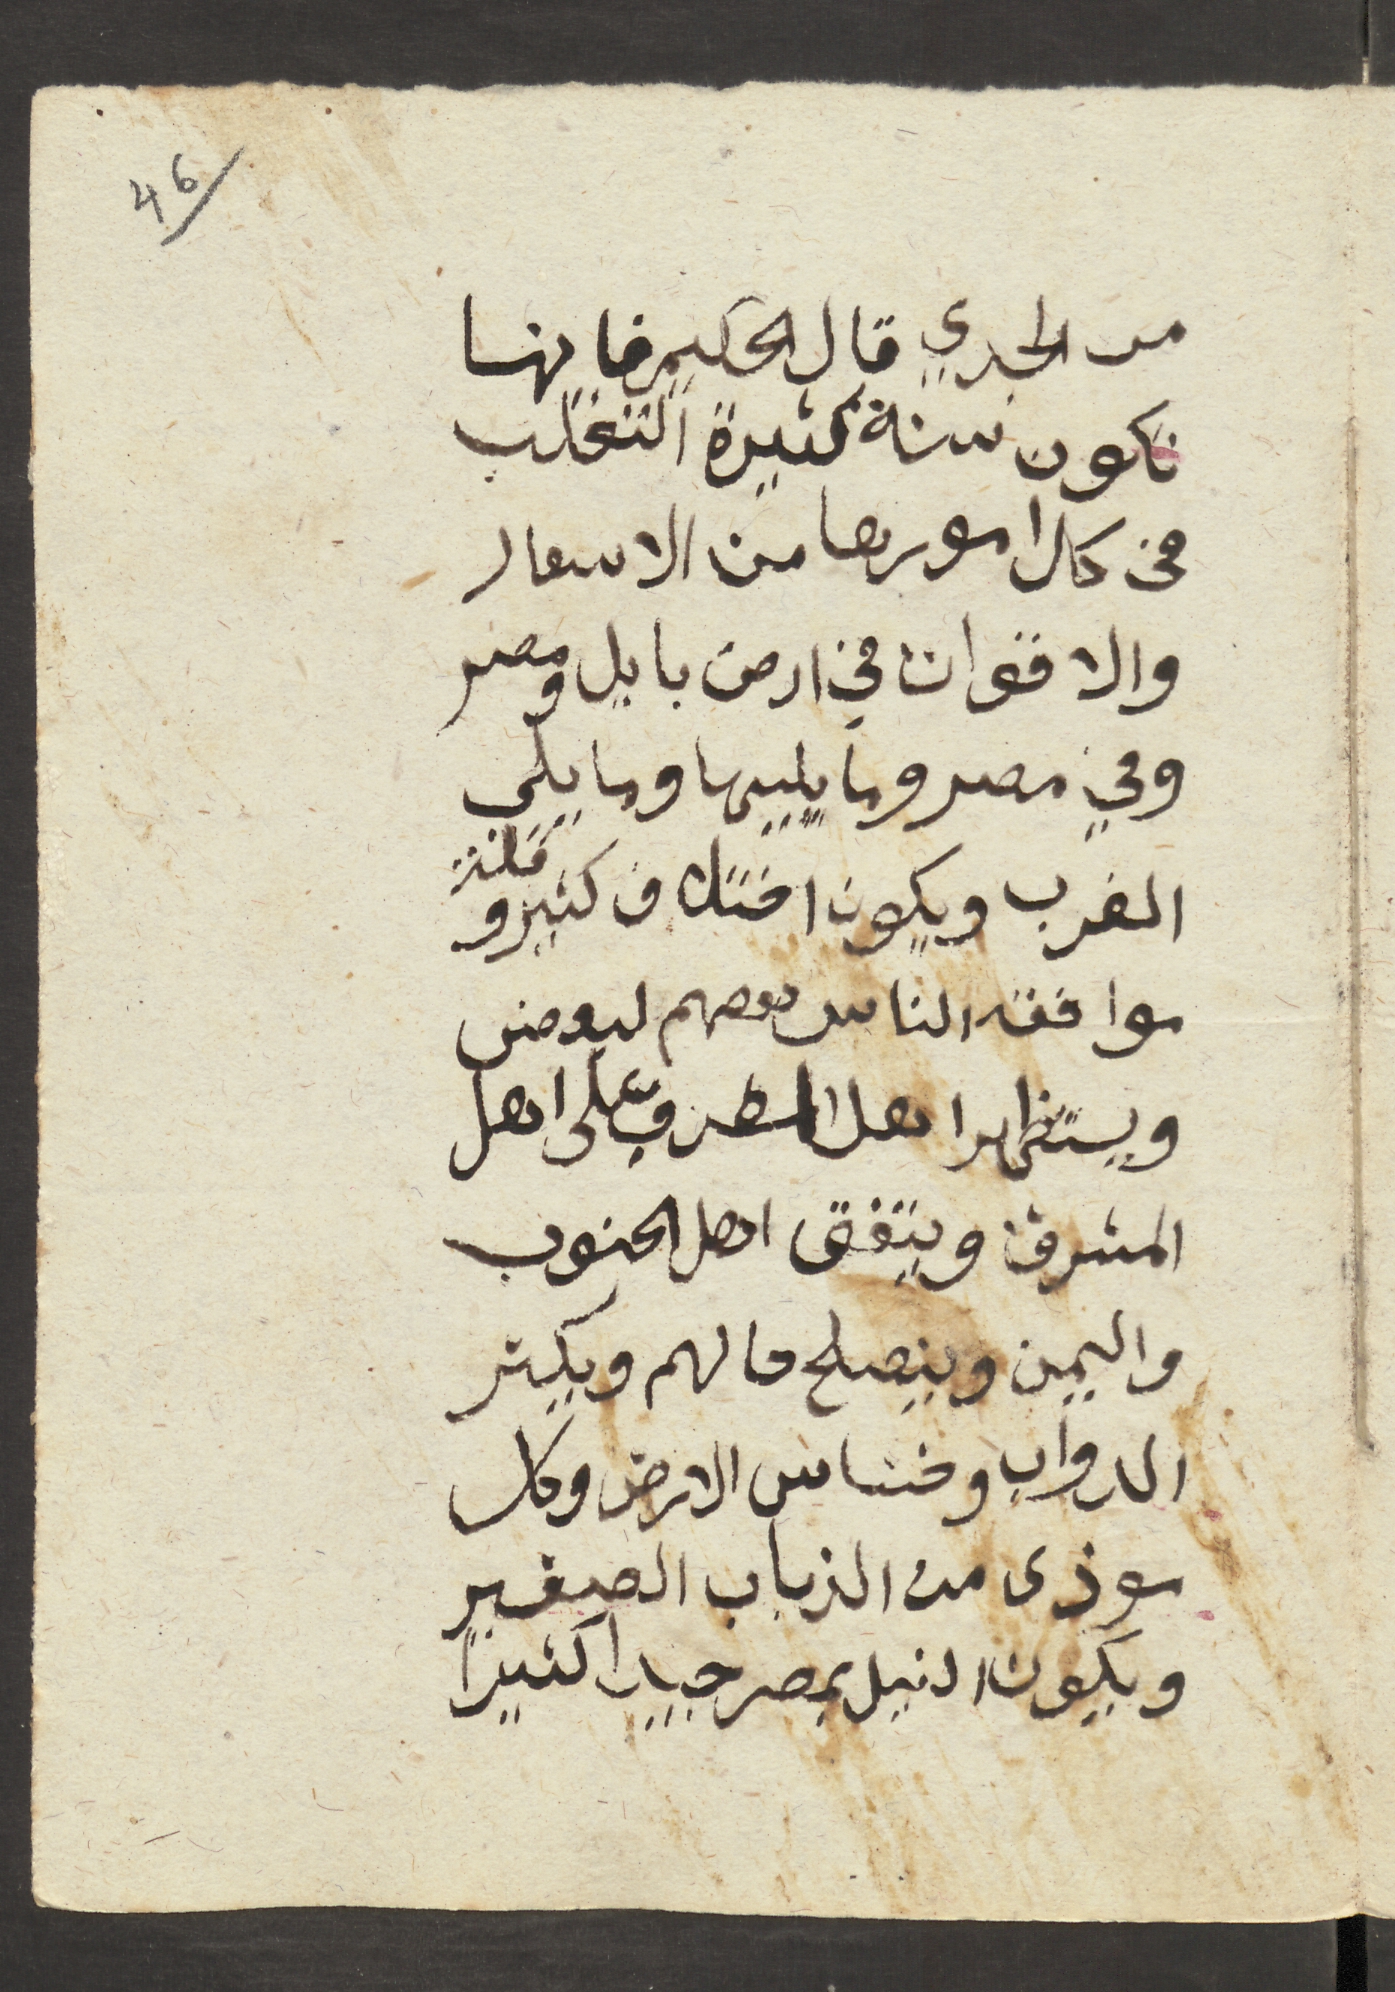 46
من الجدي قال الحكيم فانها
تكون سنة كثيرة التغلب
فى كل امورها من الاسعار
والاقوات في ارض بابل ومصر
وفي مصر وما يليها وما يلي
الغرب ويكون اختلاف كثير وقلة
موافقه الناس بعضهم لبعض
ويستظهر اهل على اهل
المشرق ويتفق اهل الجنوب
واليمن وينصلح حالهم ويكثر
الدواب وخناس الارض وكل
موذى من الذباب الصغير
ويكون النيل بمصر جيدا كثيرا